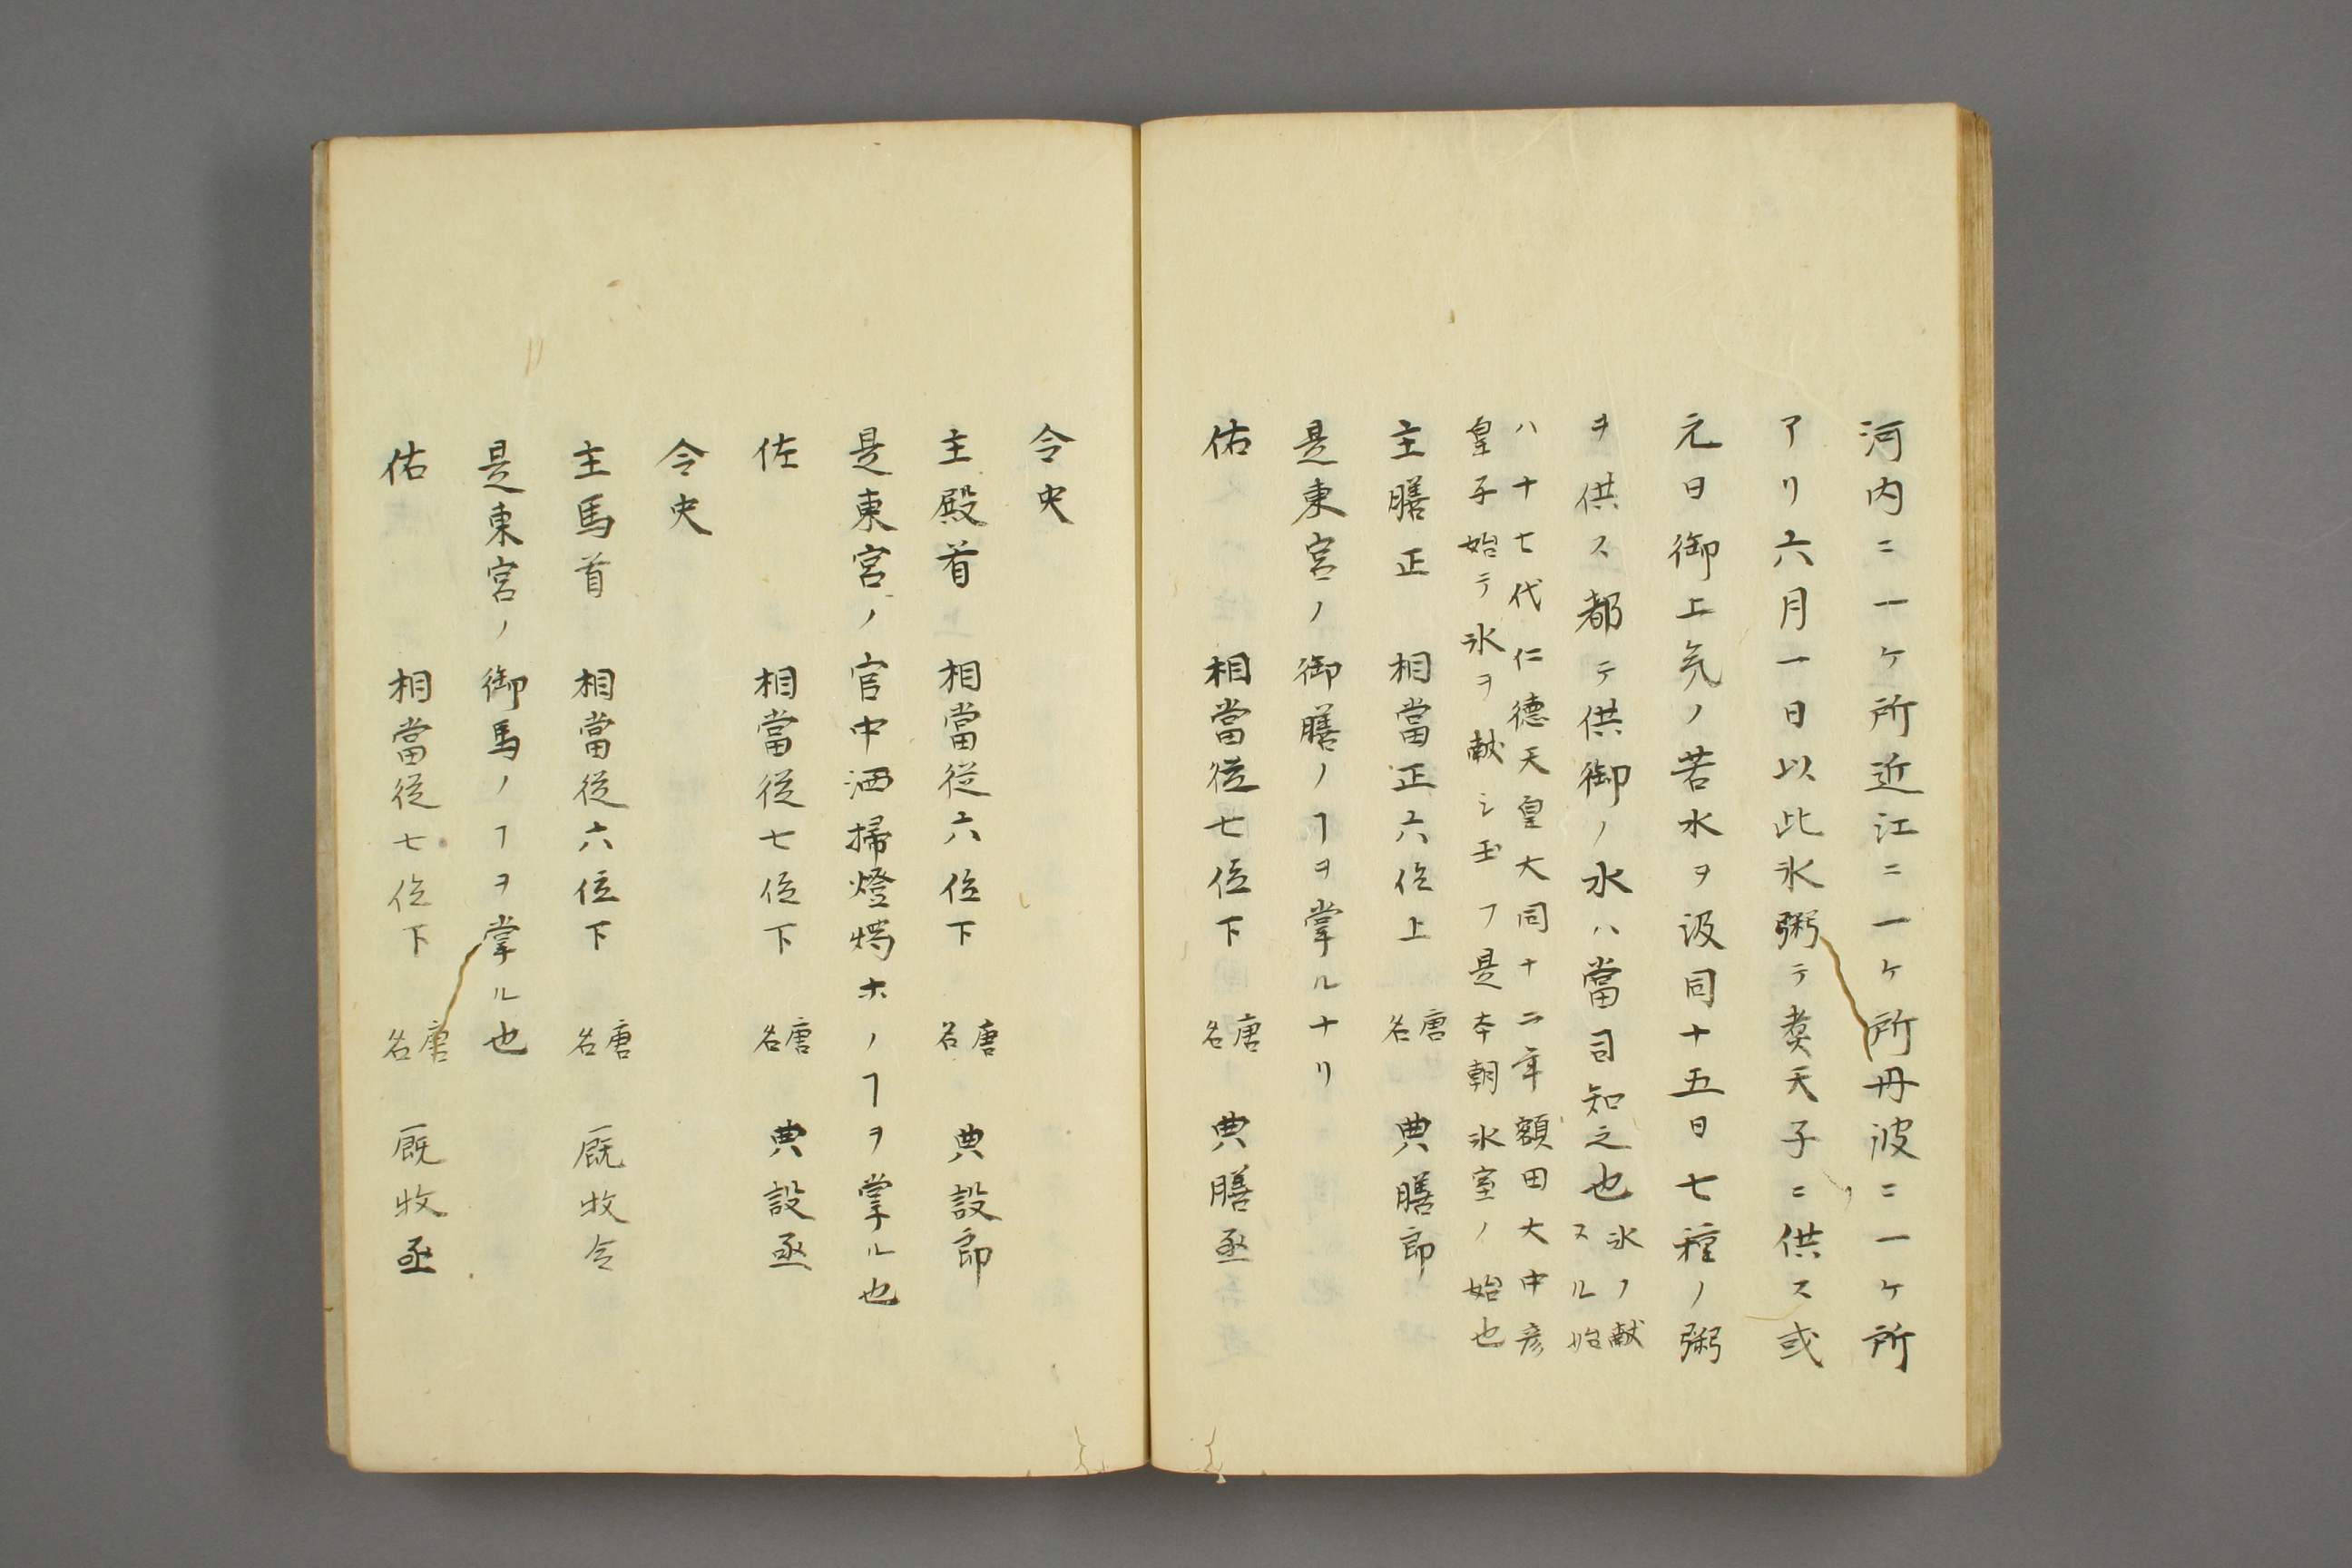 河内ニ一ヶ所近江ニ一ヶ所丹波ニ一ヶ所
アリ六月一日以此氷粥テ煑天子ニ供ス或
元日御上气ノ若水ヲ汲同十五日七種ノ粥
ヲ供ス都テ供御ノ水ハ當司知之也
氷ノ献
スル始
ハ十七代仁德天皇大同十二年額田大中彦
皇子始テ氷ヲ献シ玉フ是本朝氷室ノ始也
主膳正 相當正六位上 唐名 典膳郎
是東宮ノ御膳ノヿヲ掌ルナリ
佑 相當従七位下 唐名 典膳丞
令史
主殿首 相當従六位下 唐名 典設郎
是東宮ノ官中洒掃燈燭ホノヿヲ掌ル也
佐 相當従七位下 唐名 典設丞
令史
主馬首 相當従六位下 唐名 厩牧令
是東宮ノ御馬ノヿヲ掌ル也
佑 相當従七位下 唐名 厩牧丞